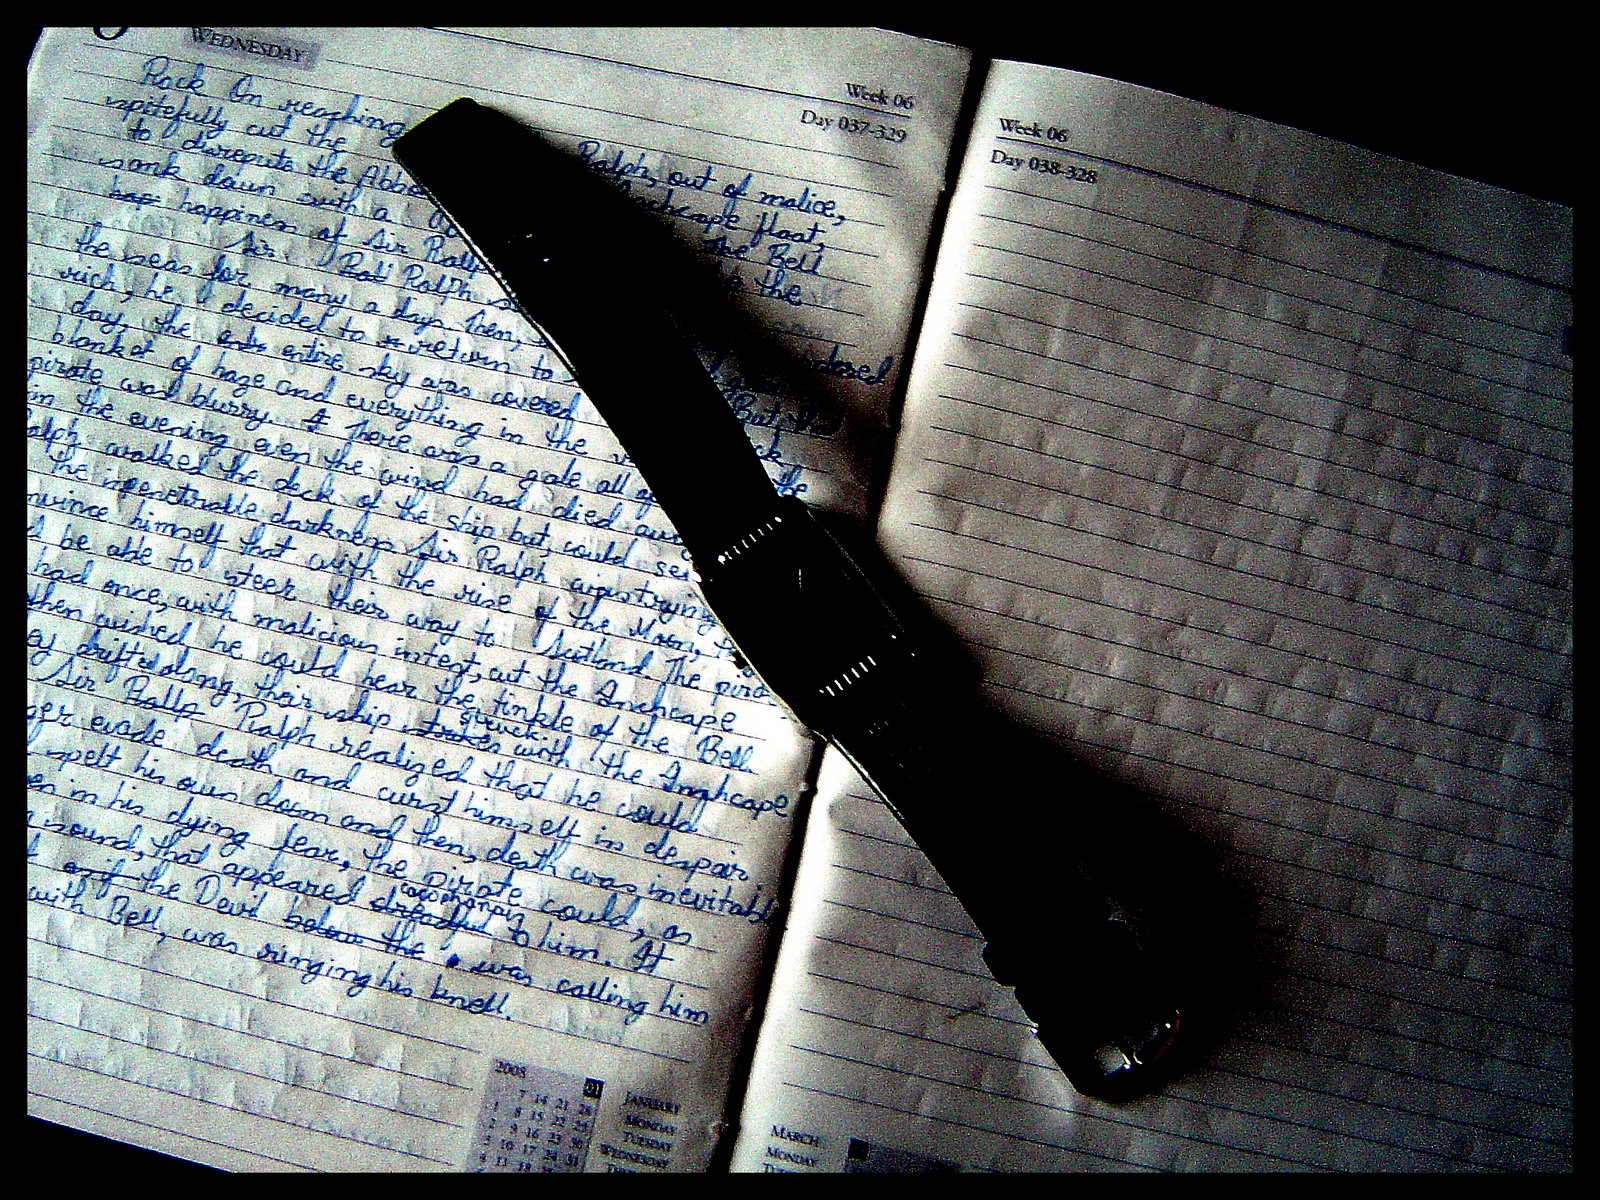 WEDNESDAY
Week 06
Day 037-329
Rock On reaching Ralph, out of malice,
spitefully cut the Inchcape float,
to disrepute the Abbo The Bell
sank down with a g the
happiness of Sir Ralp
Sir Ralph closed
the seas for many a days. Then,
rich, he decided to return to But, the
day, the entire sky was covered
blanket of haze and everything in the
pirate was blurry. There was a gale all of the
in the evening even the wind had died away
alph walked the deck of the ship but, could see
the inpenetrable darkness Sir Ralph was trying
nvince himself that with the rise of the Moon,
d be able to steer their way to Scotland. The pira
had once, with malicious intent, cut the Inchcape
then wished he could hear the tinkle of the Bell
ey drifted along, their ship struck with the Inchcape
Sir Ralph realized that he could
ger evade death and curst himself in despair
spelt his own doom and then, death was inevitabl
en in his dying fear, the pirate could, as
sound, that appeared to him. It
the Devil below the was calling him
with Bell, was ringing his knell.
2008
01
7 14 21 28
1 8 15 22 29
2 9 16 23 30
3 10 17 24 31
JANUARY
MONDAY
TUESDAY
WEDNESDAY
Week 06
Day 038-328
MARCH
MONDAY